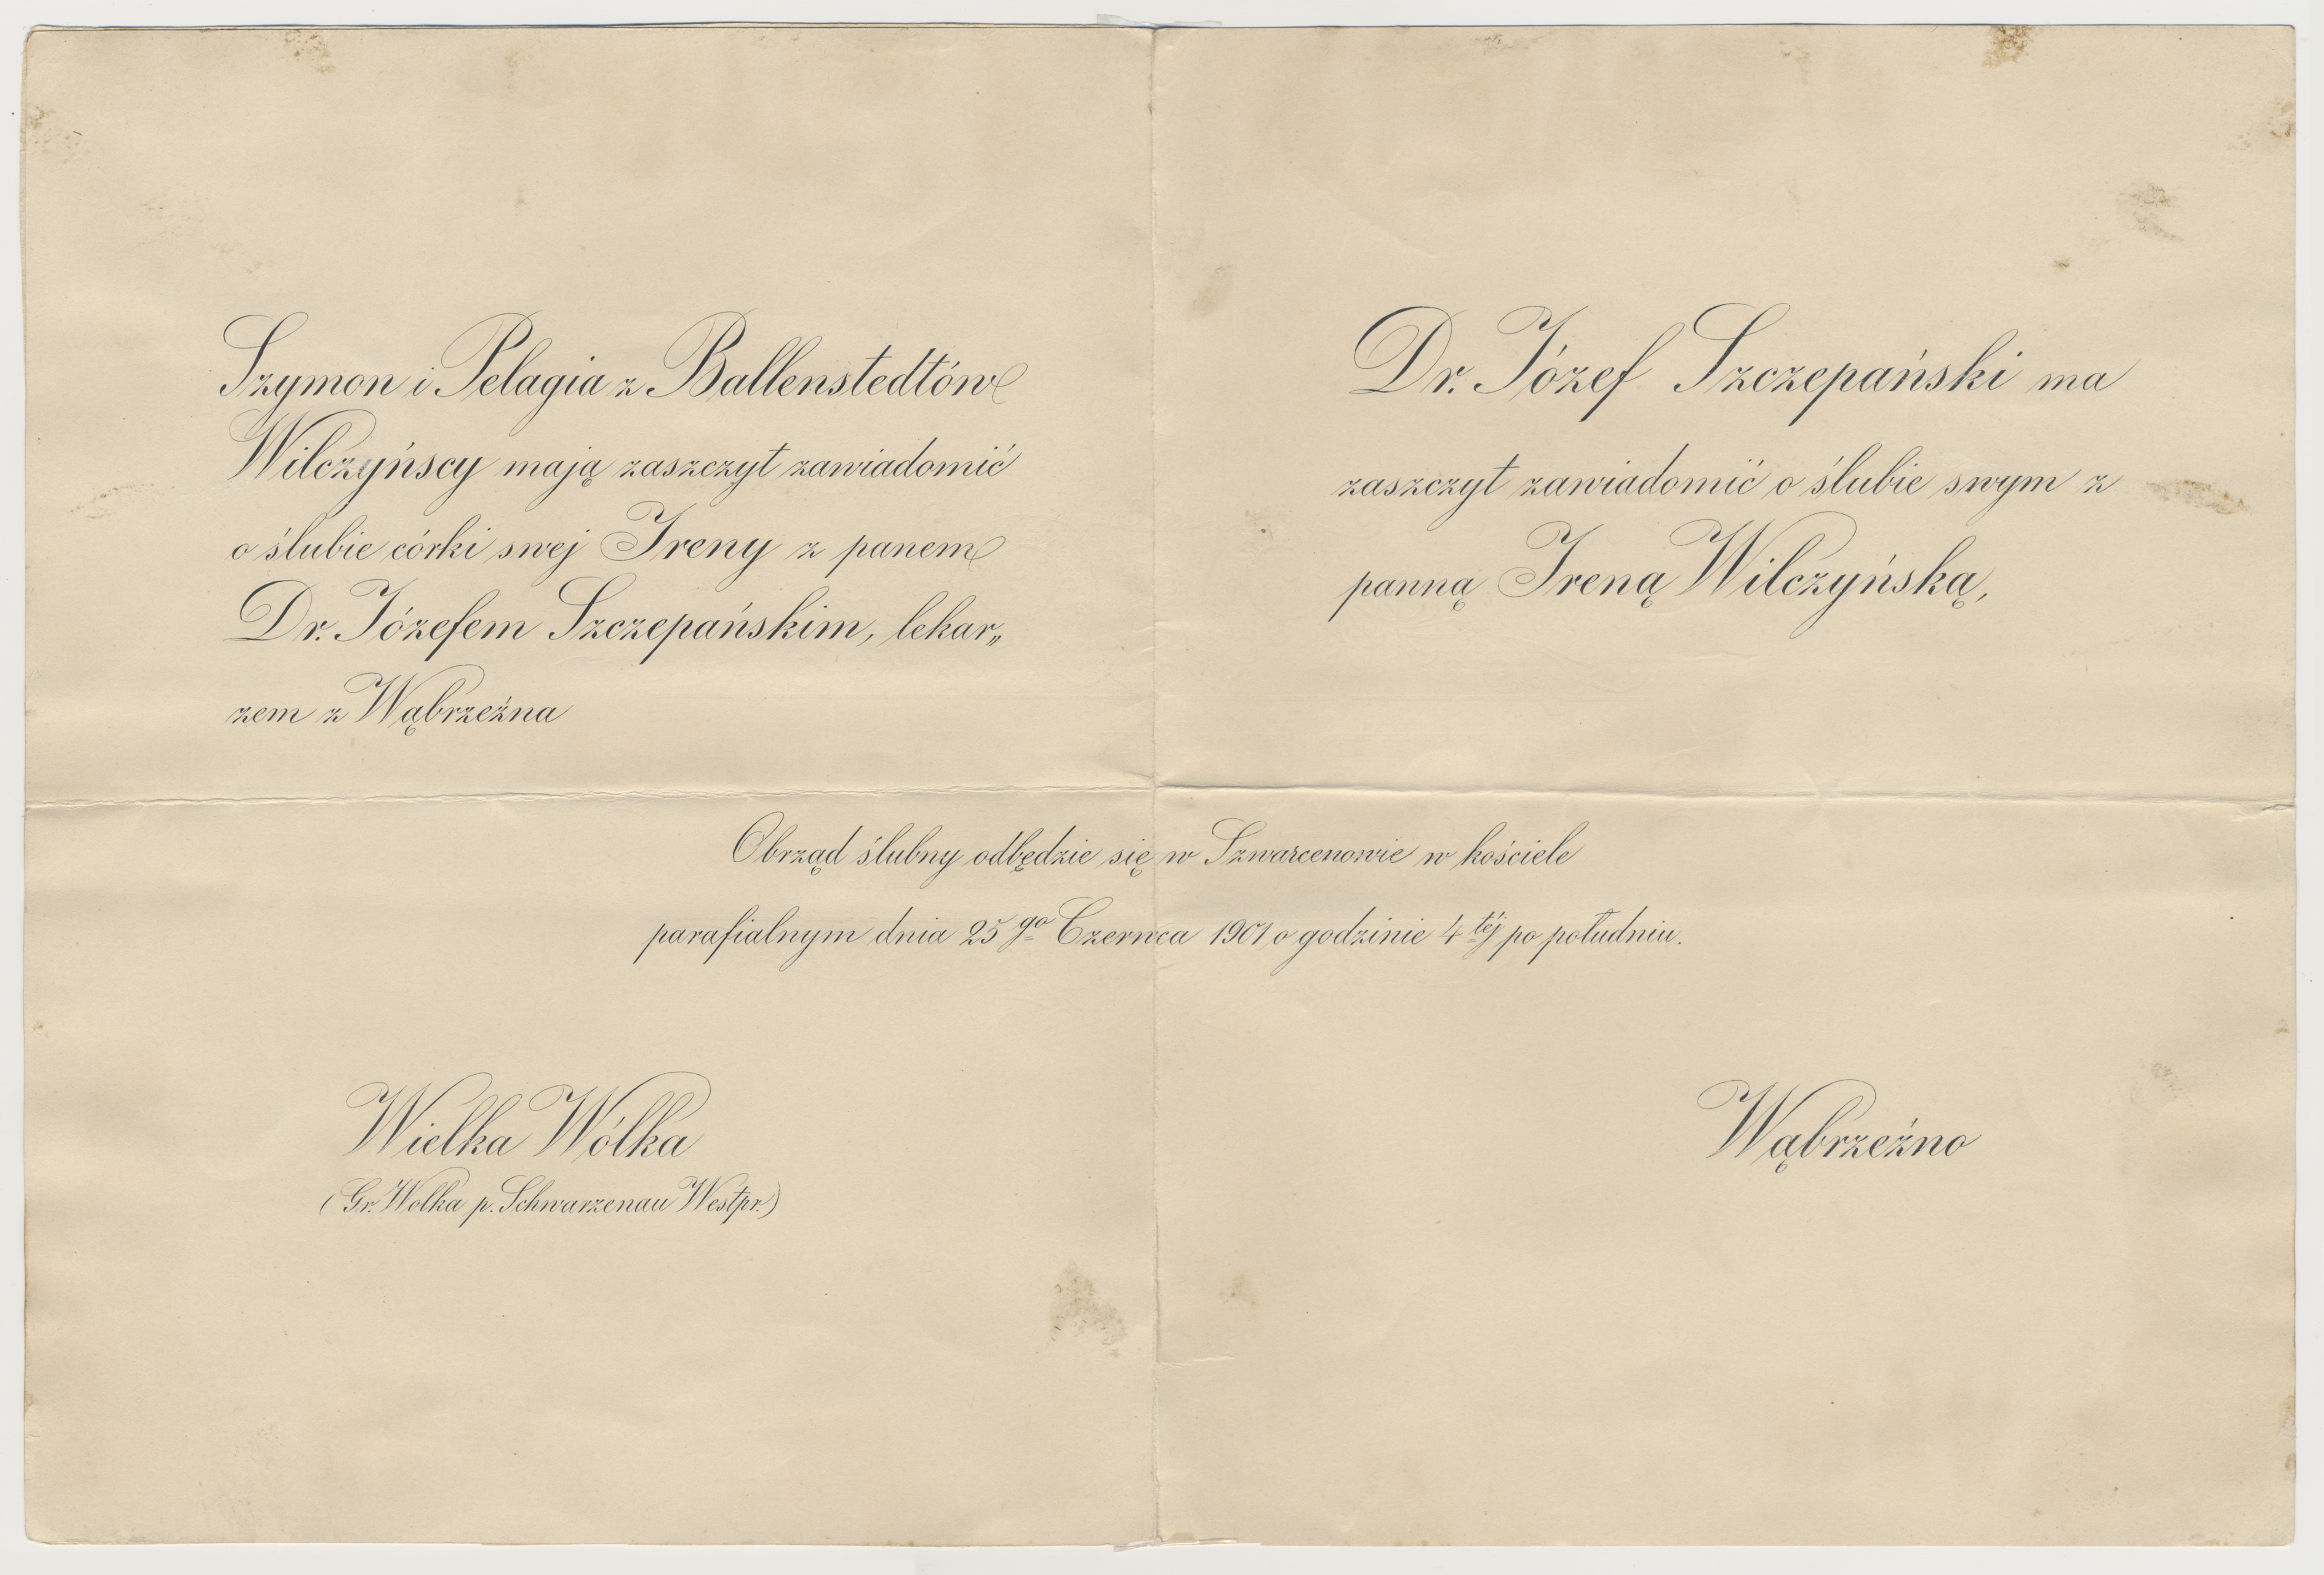 Szymon i Pelagia z Ballenstedtów
Wilczyńscy mają zaszczyt zawiadomić
o ślubie córki swej Ireny z panem
Dr. Józefem Szczepańskim, lekar„
zem z Wąbrzeźna
Dr. Józef Szczepański ma
zaszczyt zawiadomić o ślubie swym z
panną Ireną Wilczyńską,
Obrząd ślubny odbędzie się w Szwarcenowie w kościele
parafialnym dnia 25go Czerwca 1901 o godzinie 4téj po południu.
Wielka Wólka
(Gr. Wolka p. Schwarzenau Westpr.)
Wąbrzeźno